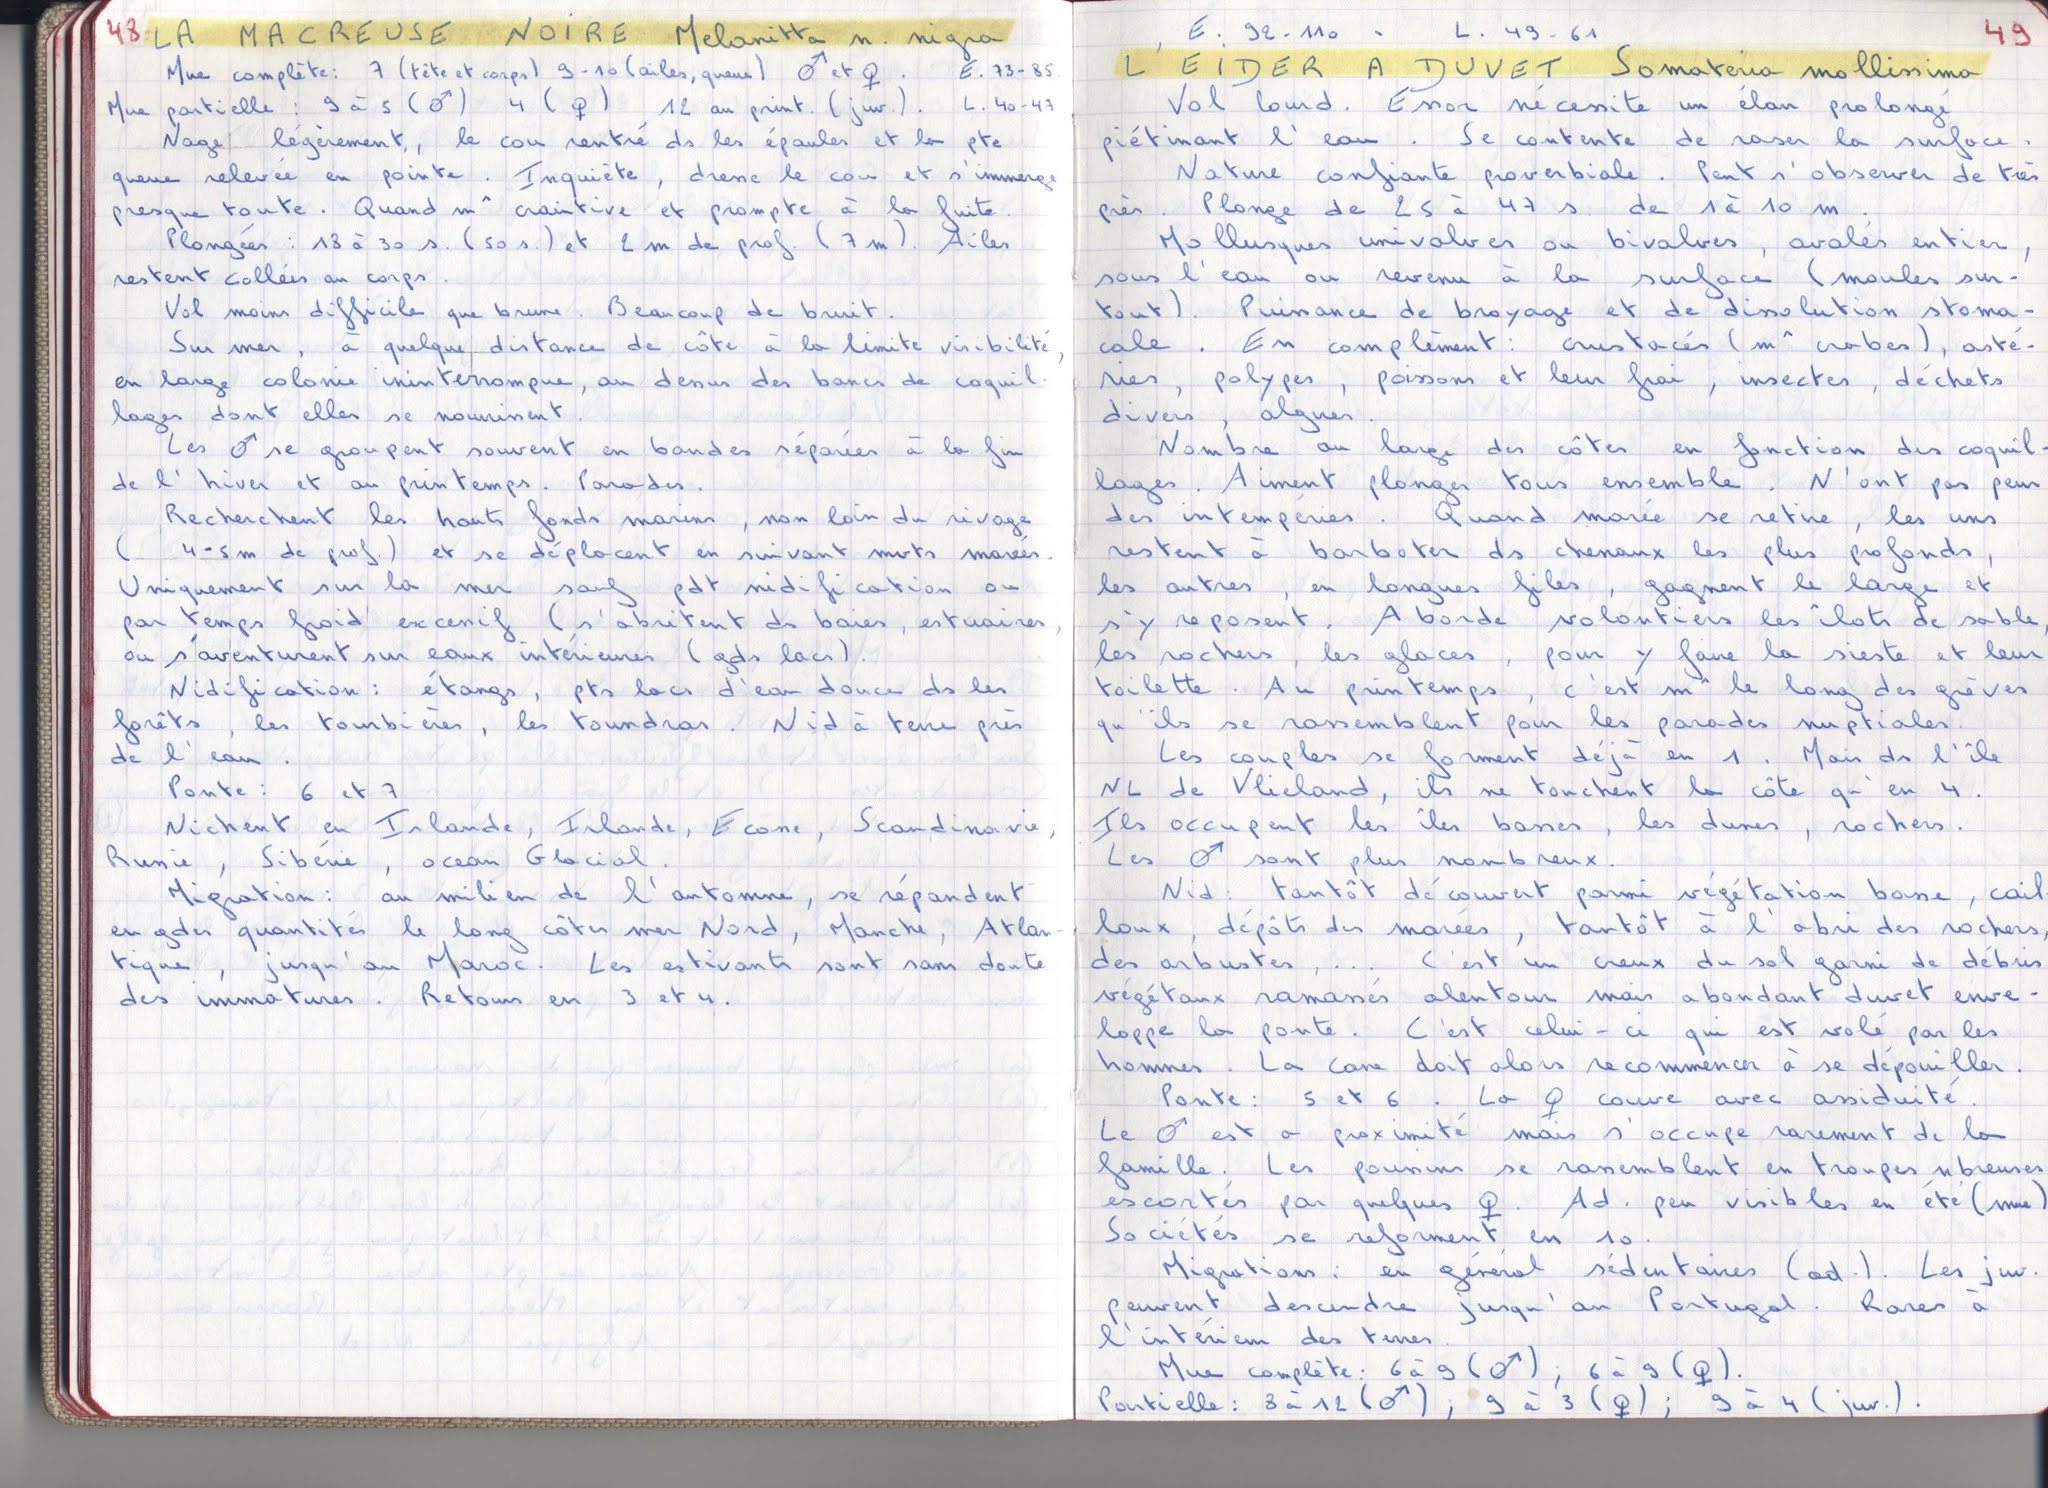 48 LA MACREUSE NOIRE Melanitta n. nigra
Mue complète : 7 (tête et corps) 9-10 (ailes, queue) ♂ et ♀. E. 73-85
Mue partielle : 9 à 5 (♂) 4 (♀) 12 au print. (juv.). L. 40-47
Nage légèrement, le cou rentré ds les épaules et la pte
queue relevée en pointe. Inquiète, dresse le cou et s'immerge
presque toute. Quand m^ craintive et prompte à la fuite.
Plongées : 18 à 30 s. (50 s.) et 2 m de prof. (7 m). Ailes
restent collées au corps.
Vol moins difficile que brune. Beaucoup de bruit.
Sur mer, à quelque distance de côte à la limite visibilité,
en large colonie ininterrompue, au dessus des bancs de coquil-
lages dont elles se nourrissent.
Les ♂ se groupent souvent en bandes séparées à la fin
de l'hiver et au printemps. Parades.
Recherchent les hauts fonds marins, non loin du rivage
( 4-5m de prof.) et se déplacent en suivant mvts marées.
Uniquement sur la mer sauf pdt nidification ou
par temps froid excessif (s'abritent ds baies, estuaires,
ou s'aventurent sur eaux intérieures (gds lacs).
Nidification : étangs, pts lacs d'eau douce ds les
forêts, les tourbières, les toundras. Nid à terre près
de l'eau.
Ponte : 6 et 7
Nichent en Islande, Irlande, Ecosse, Scandinavie,
Russie, Sibérie, ocean Glacial.
Migration : au milieu de l'automne, se répandent
en gdes quantités le long côtes mer Nord, Manche, Atlan-
tique, jusqu'au Maroc. Les estivants sont sans doute
des immatures. Retour en 3 et 4.
E. 92-110 - L. 49-61 49
L'EIDER A DUVET Somateria mollissima
Vol lourd. Essor nécessite un élan prolongé
piétinant l'eau. Se contente de raser la surface.
Nature confiante proverbiale. Peut s'observer de très
près. Plonge de 25 à 47 s. de 1 à 10 m.
Mollusques univalves ou bivalves, avalés entier,
sous l'eau ou revenu à la surface (moules sur-
tout). Puissance de broyage et de dissolution stoma-
cale. En complèment : crustacés (m^ crabes), asté-
ries, polypes, poissons et leur frai, insectes, déchets
divers, algues.
Nombre au large des côtes en fonction des coquil-
lages. Aiment plonger tous ensemble. N'ont pas peur
des intempéries. Quand marée se retire, les uns
restent à barboter ds chenaux les plus profonds,
les autres, en longues files, gagnent le large et
s'y reposent. Aborde volontiers les îlots de sable,
les rochers, les glaces, pour y faire la sieste et leur
toilette. Au printemps, c'est m^ le long des grèves
qu'ils se rassemblent pour les parades nuptiales.
Les couples se forment déjà en 1. Mais ds l'île
NL de Vlieland, ils ne touchent la côte qu'en 4.
Ils occupent les îles basses, les dunes, rochers.
Les ♂ sont plus nombreux.
Nid : tantôt découvert parmi végétation basse, cail-
loux, dépôts des marées, tantôt à l'abri des rochers,
des arbustes,... C'est un creux du sol garni de débris
végétaux ramassés alentour mais abondant duvet enve-
loppe la ponte. C'est celui-ci qui est volé par les
hommes. La cane doit alors recommencer à se dépouiller.
Ponte : 5 et 6. La ♀ couve avec assiduité.
Le ♂ est a proximité mais s'occupe rarement de la
famille. Les poussins se rassemblent en troupes nbreuses
escortés par quelques ♀. Ad. peu visibles en été (mue)
Sociétés se reforment en 10.
Migrations : en général sédentaires (ad.). Les juv.
peuvent descendre jusqu'au Portugal. Rares à
l'intérieur des terres.
Mue complète : 6 à 9 (♂) ; 6 à 9 (♀).
Partielle : 3 à 12 (♂) ; 9 à 3 (♀) ; 9 à 4 (juv.).